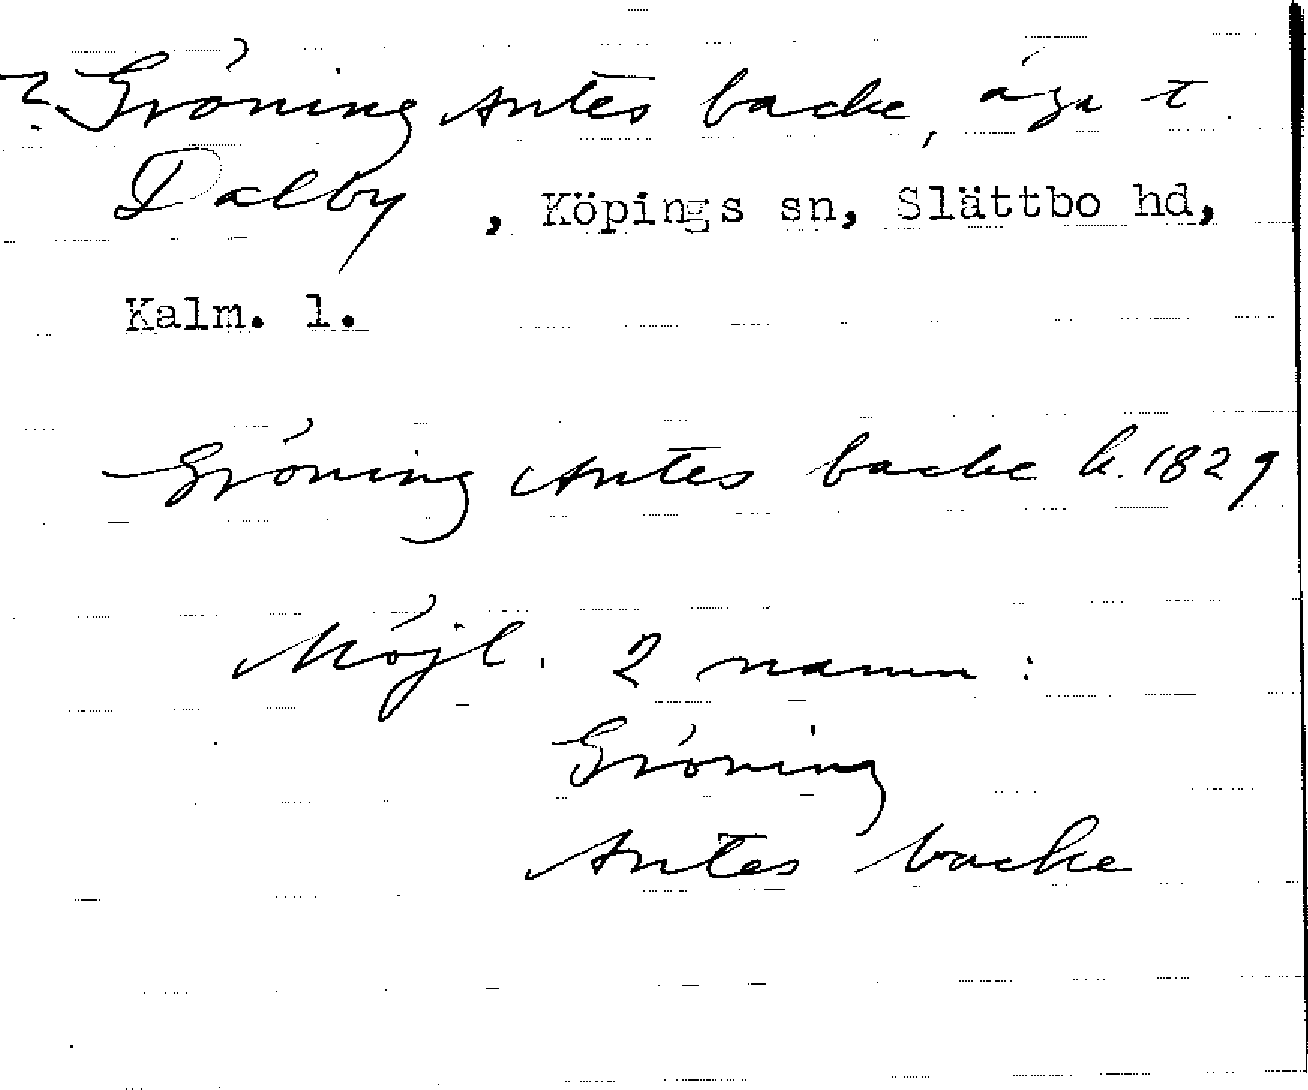 ? Gröning Antes backe, äga t
Dalby, Köpings sn, Slättbo hd,
Kalm. l.
Gröning Antes backe k. 1829
Möjl. 2 namn:
Gröning
Antes backe